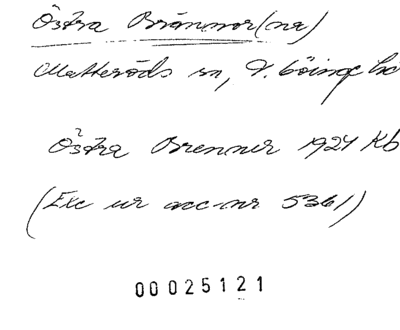 Östra Brännor(na)
Matteröds sn, V. Göinge hd
Östra Brenner 1924 Kb
(Exc ur acc-nr 5361)
00025121